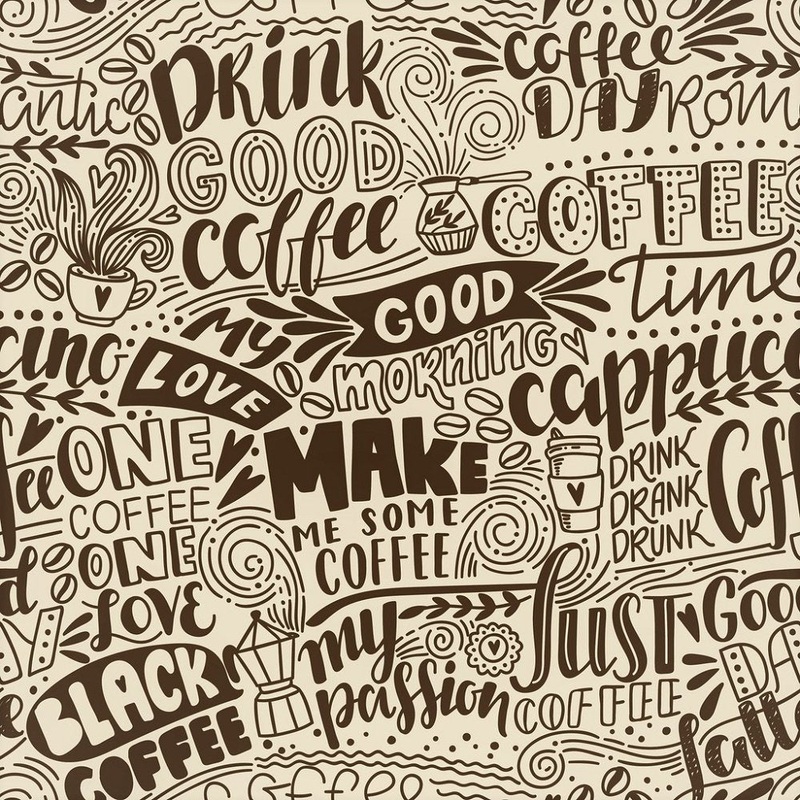 Drink
GOOD
coffee
coffee
DAY
Rom
antic
COFFEE
time
GOOD
morning
MY
LOVE
cino
cappucc
ONE
COFFEE
ONE
LOVE
MAKE
ME SOME
COFFEE
DRINK
DRANK
DRUNK
Coff
ee
my
passion
JUST
COFFEE
Good
DA
Y
BLACK
COFFEE
latte
coffee